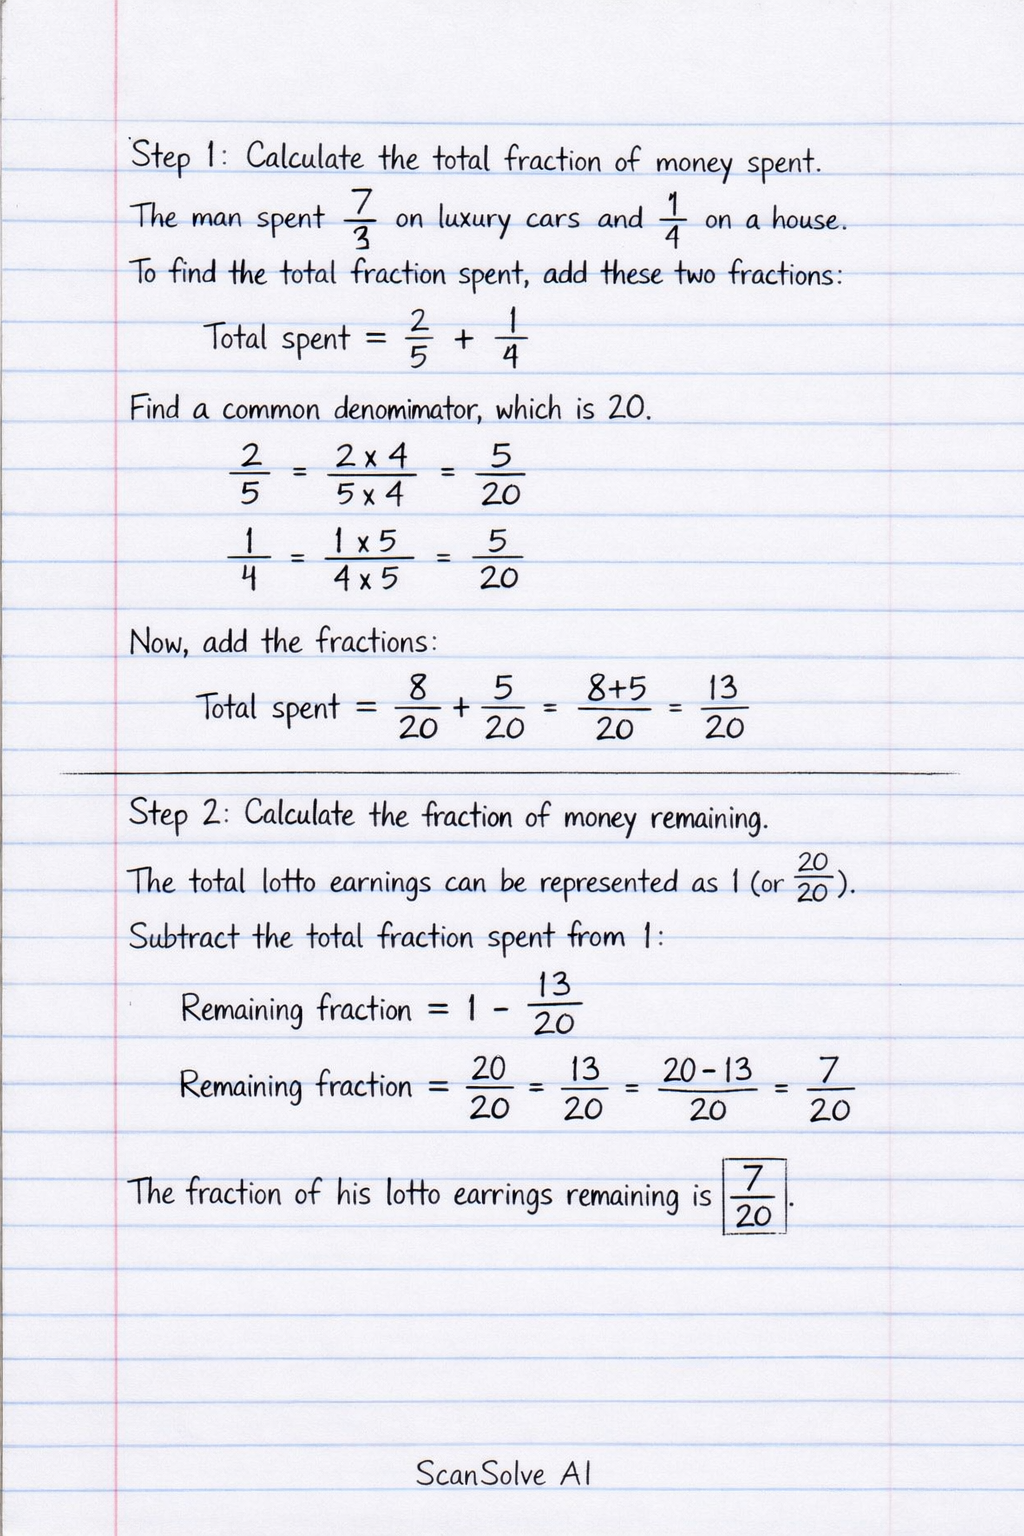 Step 1: Calculate the total fraction of money spent.
The man spent 7/3 on luxury cars and 1/4 on a house.
To find the total fraction spent, add these two fractions:
Total spent = 2/5 + 1/4
Find a common denomimator, which is 20.
2/5 = 2 x 4/5 x 4 = 5/20
1/4 = 1 x 5/4 x 5 = 5/20
Now, add the fractions:
Total spent = 8/20 + 5/20 = 8+5/20 = 13/20
Step 2: Calculate the fraction of money remaining.
The total lotto earnings can be represented as 1 (or 20/20).
Subtract the total fraction spent from 1:
Remaining fraction = 1 - 13/20
Remaining fraction = 20/20 = 13/20 = 20-13/20 = 7/20
The fraction of his lotto earrings remaining is 7/20.
ScanSolve AI